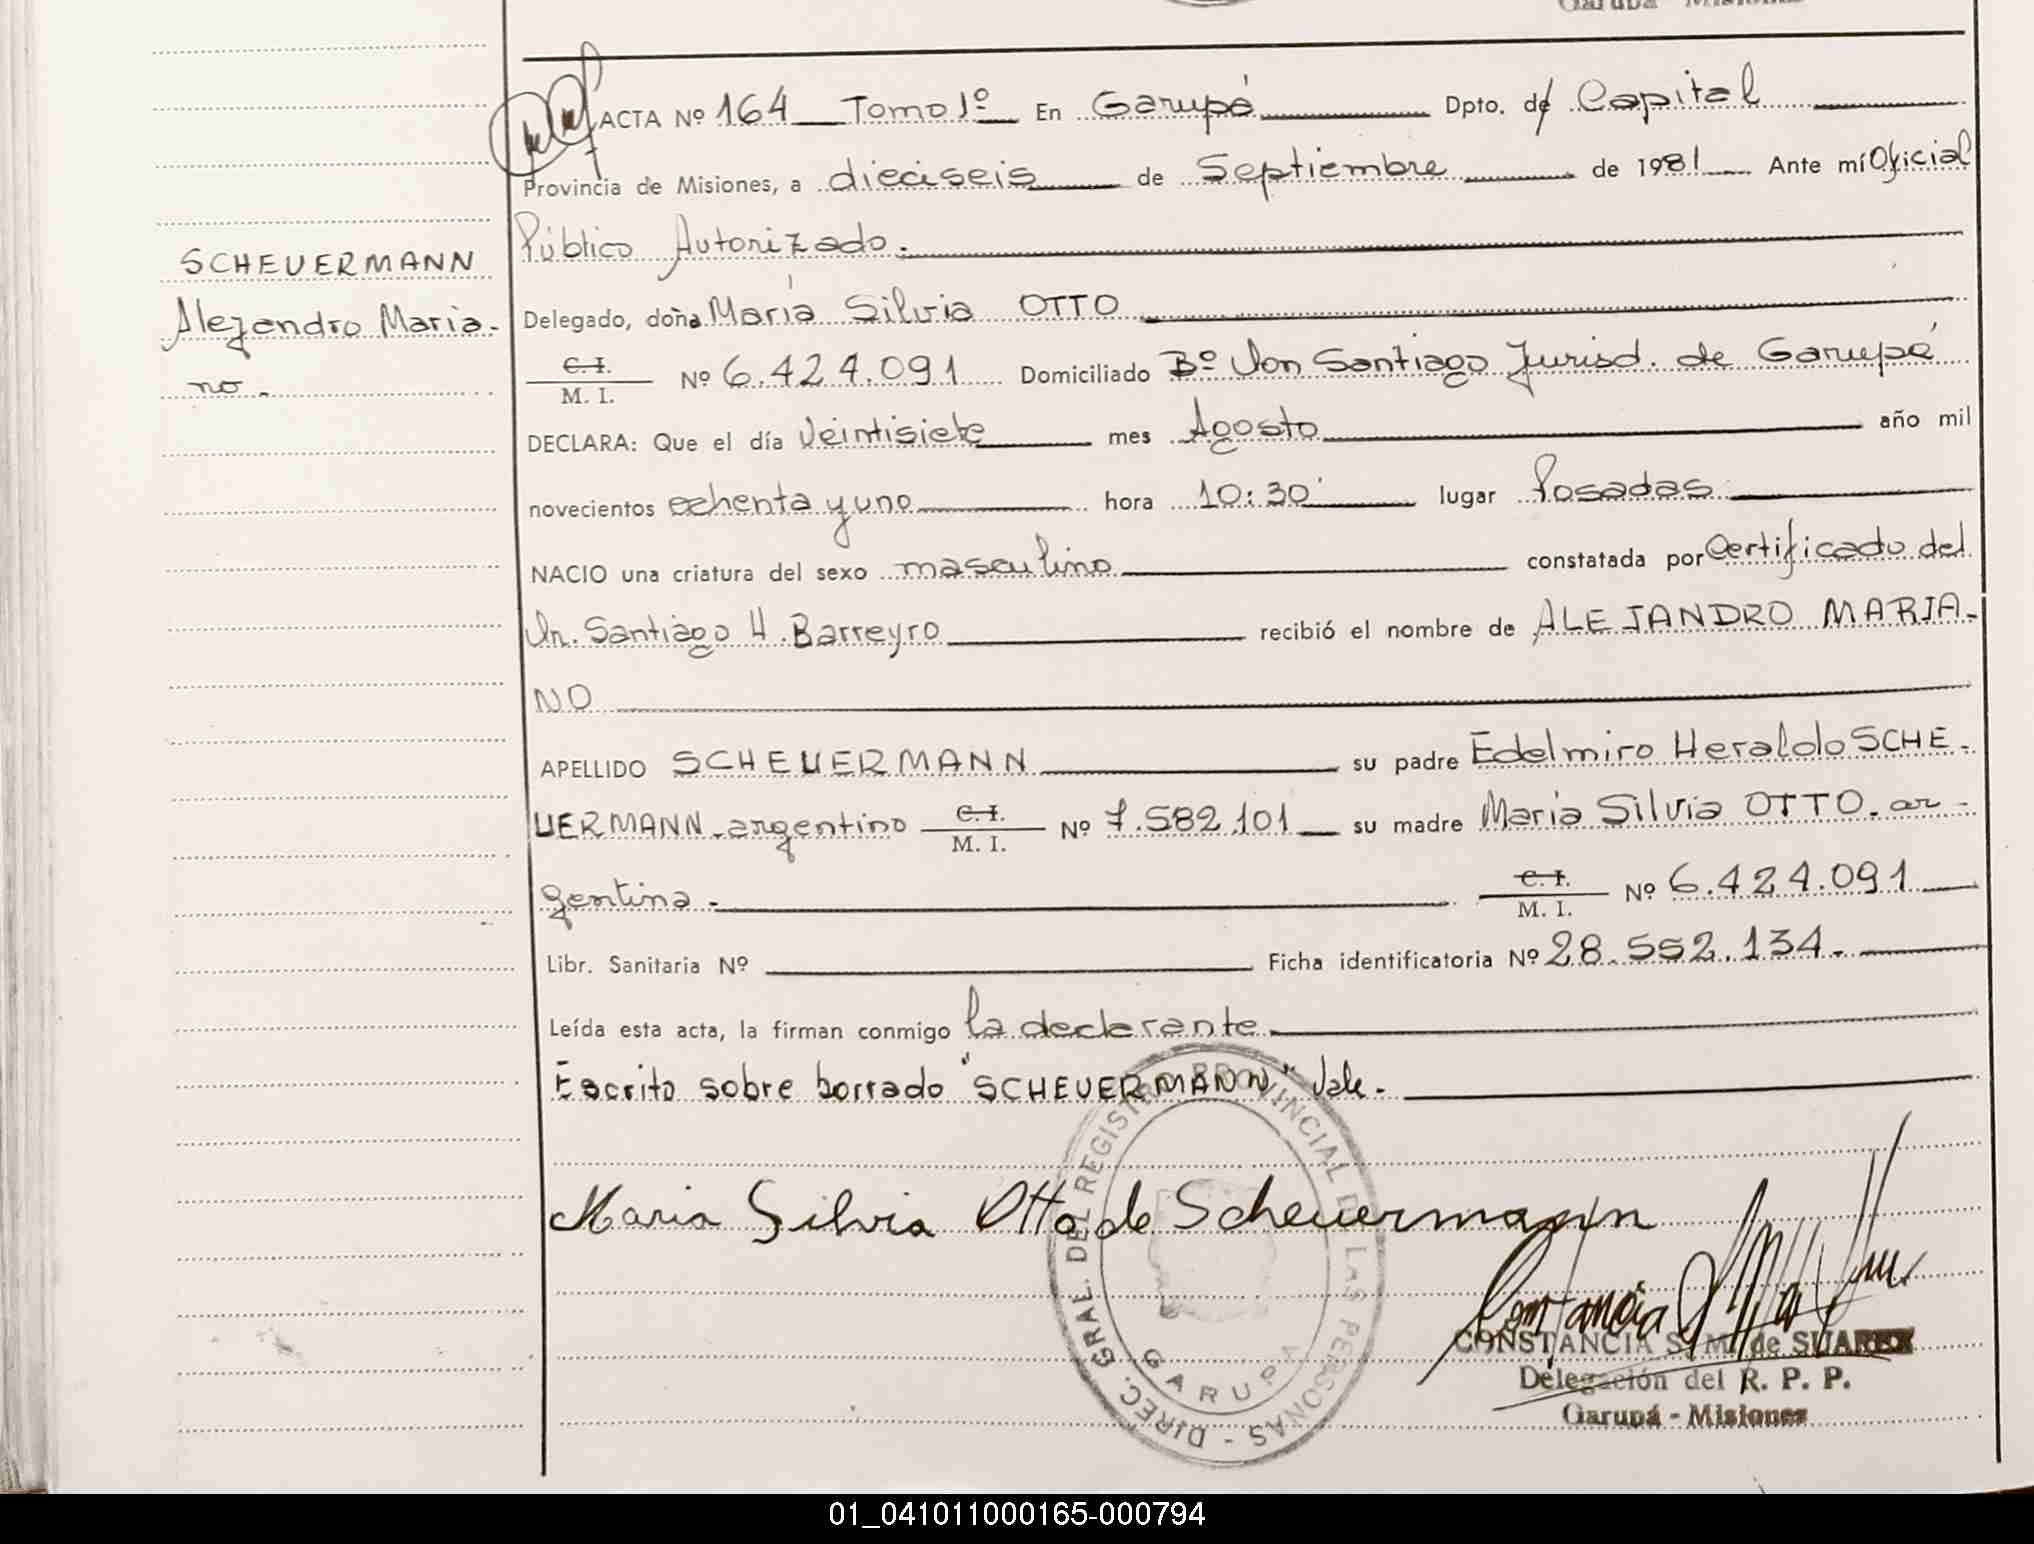 Garupá - Misiones
ACTA Nº 164 Tomo 1º En Garupá Dpto. de Capital
Provincia de Misiones, a dieciseis de Septiembre de 1981 Ante mí Oficial
Público Autorizado.
SCHEUERMANN
Alejandro Maria-
no.-
Delegado, doña María Silvia OTTO
C. I.
M. I. Nº 6.424.091 Domiciliado Bº Don Santiago Jurisd. de Garupá
DECLARA: Que el día Veintisiete mes Agosto año mil
novecientos ochenta y uno hora 10:30' lugar Posadas
NACIO una criatura del sexo masculino constatada por Certificado del
Dr. Santiago H. Barreyro recibió el nombre de ALEJANDRO MARIA-
NO
APELLIDO SCHEUERMANN su padre Edelmiro Heraldo SCHE-
UERMANN-argentino C. I.
M. I. Nº 7.582.101 su madre María Silvia OTTO.-ar-
gentina.- C. I.
M. I. Nº 6.424.091
Libr. Sanitaria Nº Ficha identificatoria Nº 28.552.134.-
Leída esta acta, la firman conmigo la declarante
Escrito sobre borrado "SCHEUERMANN" Vale.-
DIREC. GRAL. DEL REGISTRO PROVINCIAL DE LAS PERSONAS -
GARUPA
Maria Silvia Otto de Scheuermann
CONSTANCIA S. M. de SUAREZ
Delegación del R. P. P.
Garupá - Misiones
01_041011000165-000794